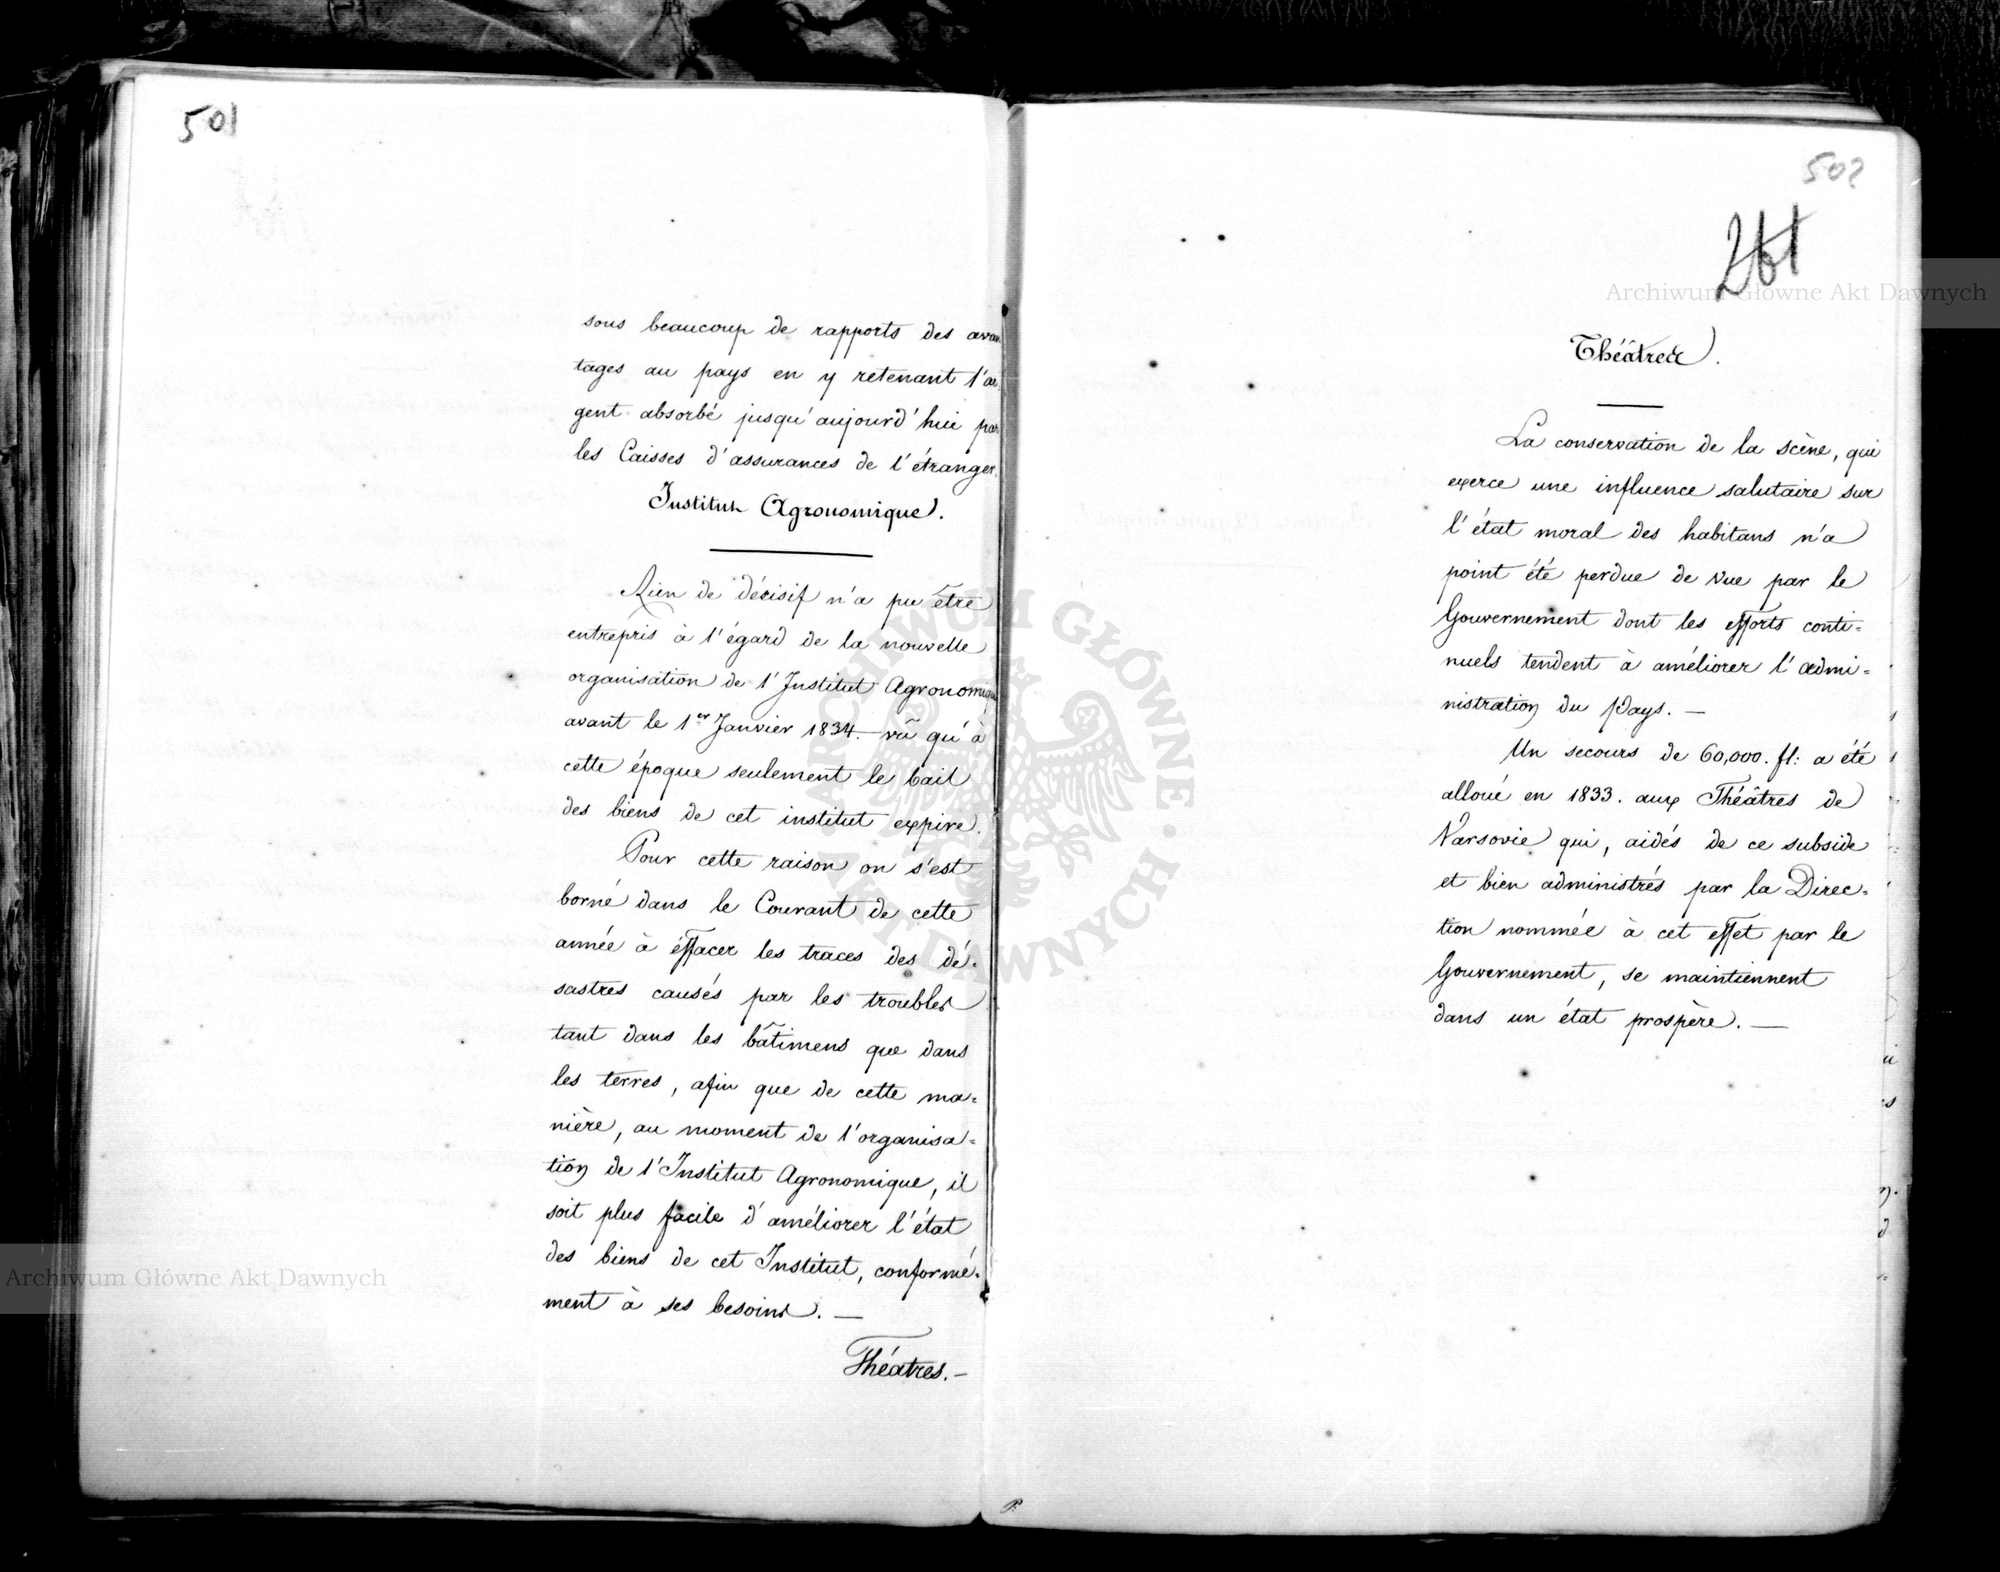 501
sous beaucoup de rapports des avan
tages au pays en y retenant l'ar
gent absorbé jusqu'aujourd'hui par
les Caisses d'assurances de l'étranger.
Institut Agronomique.
Rien de décisif n'a pu être
entrepris à l'égard de la nouvelle
organisation de l'Institut Agronomique
avant le 1er Janvier 1834. vû qu'à
cette époque seulement le bail
des biens de cet institut expire.
Pour cette raison on s'est
borné dans le Courant de cette
année à éffacer les traces des dé=
sastres causés par les troubles
tant dans les bâtimens que dans
les terres, afin que de cette ma=
nière, au moment de l'organisa=
tion de l'Institut Agronomique, il
soit plus facile d'améliorer l'état
des biens de cet Institut, conformé=
ment à ses besoins. —
Théatres. —
502
261
Théâtres.
La conservation de la scène, qui
exerce une influence salutaire sur
l'état moral des habitans n'a
point été perdue de vue par le
Gouvernement dont les efforts conti=
nuels tendent à améliorer l'admi=
nistration du Pays. —
Un secours de 60,000. fl: a été
alloué en 1833. aux Théâtres de
Varsovie qui, aidés de ce subside
et bien administrés par la Direc=
tion nommée à cet effet par le
Gouvernement, se maintiennent
dans un état prospère. —
Archiwum Główne Akt Dawnych
Archiwum Główne Akt Dawnych
ARCHIWUM GŁÓWNE AKT DAWNYCH